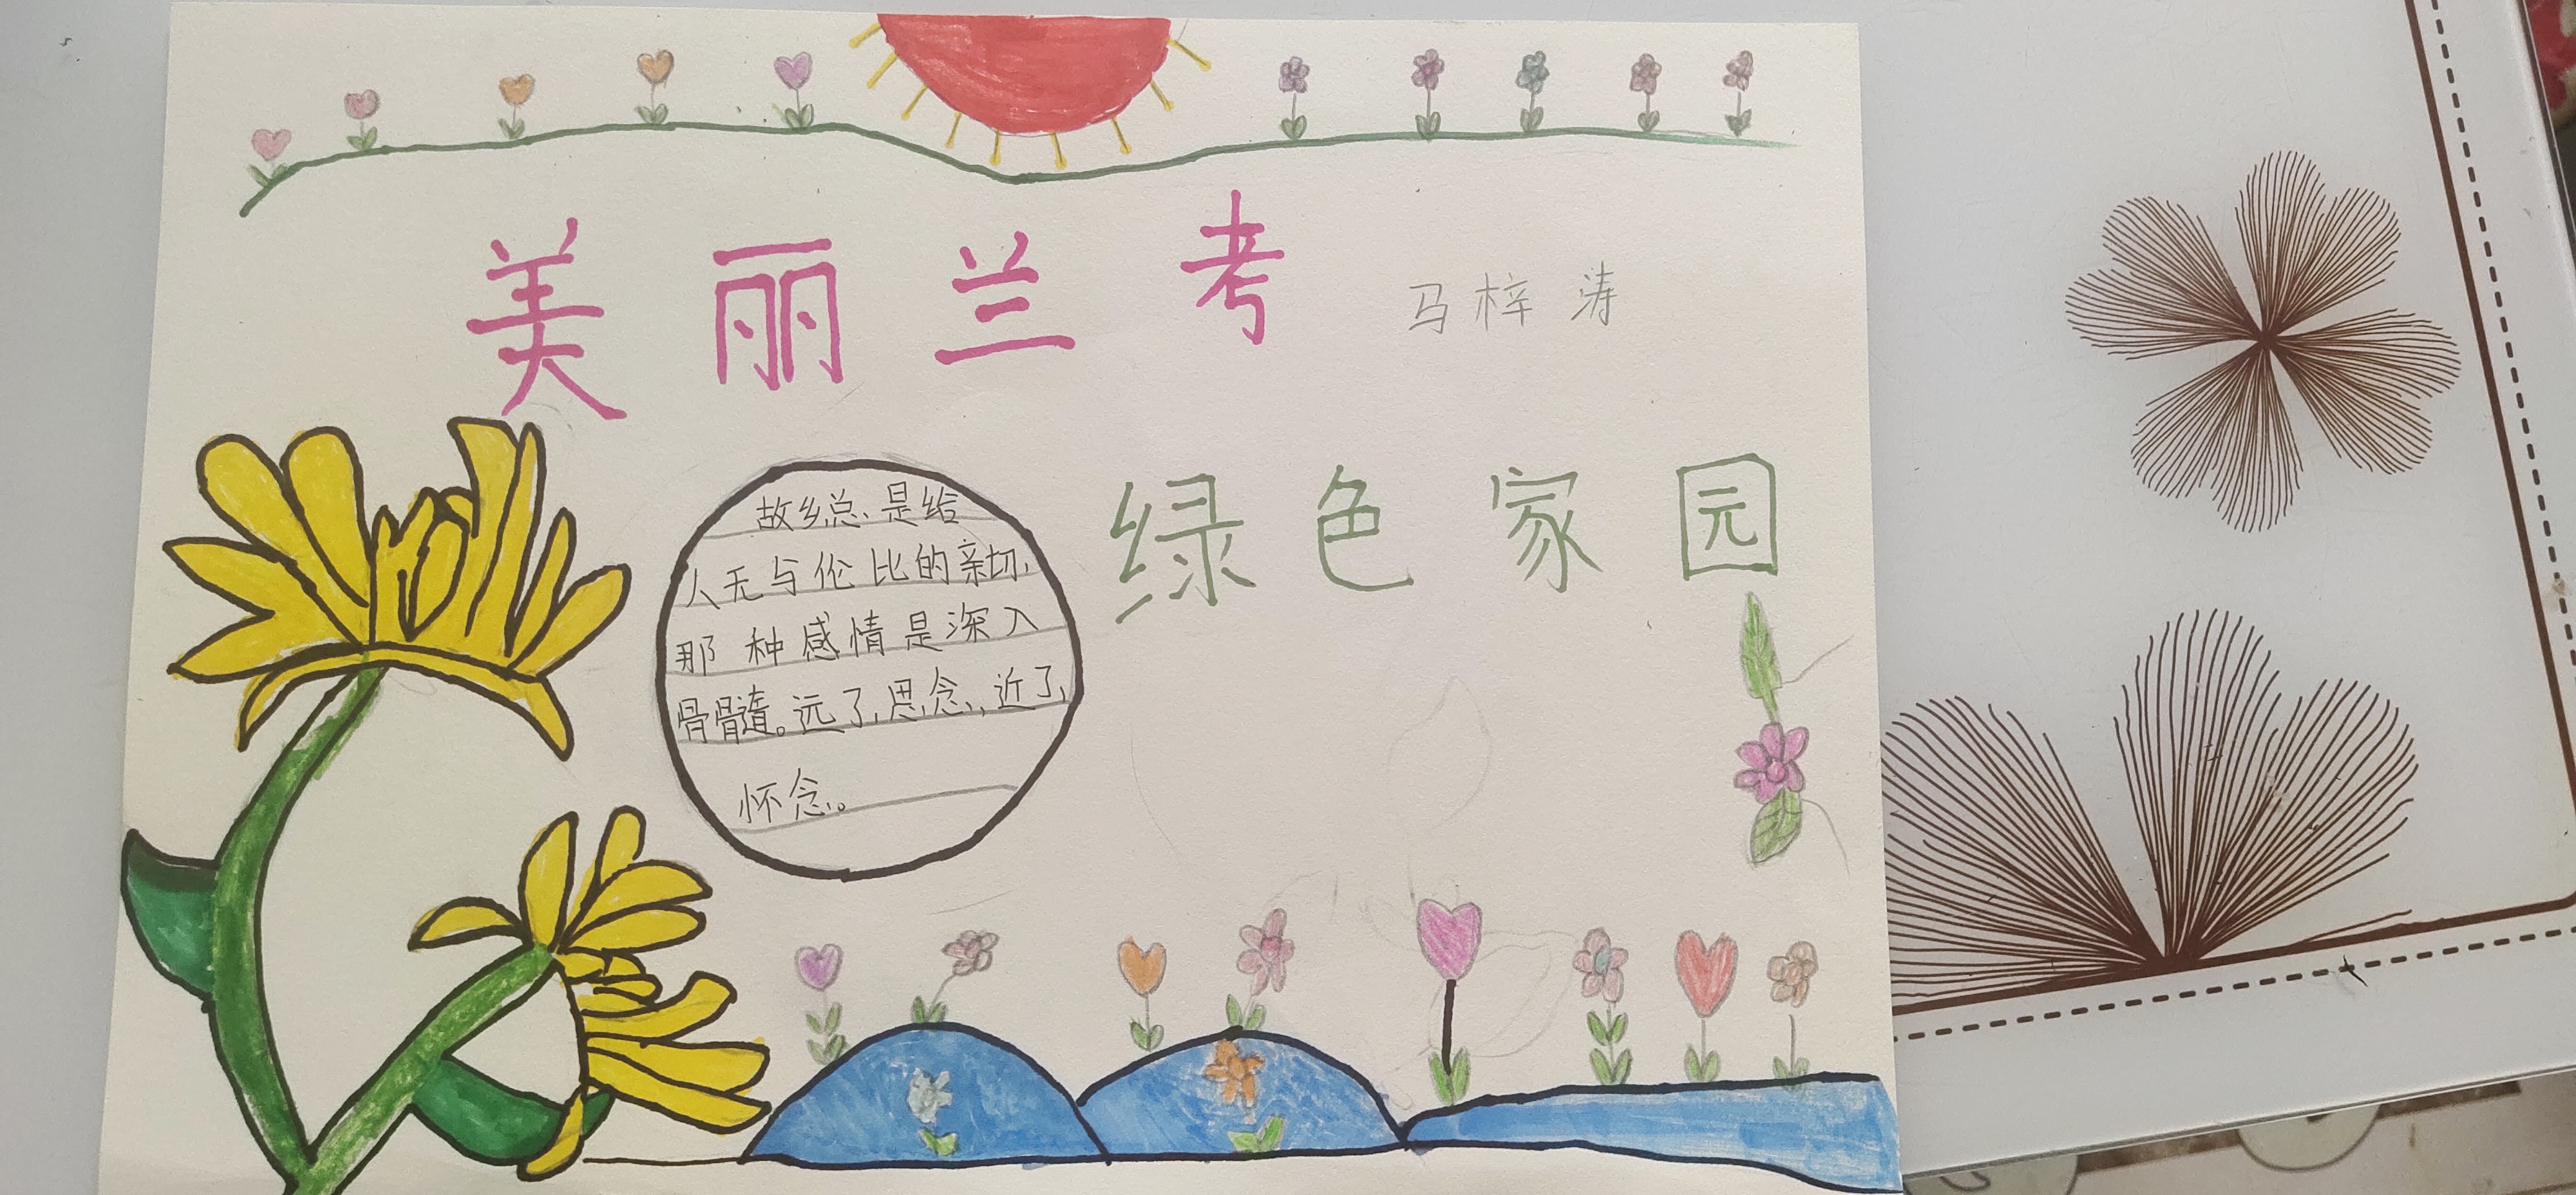 美丽兰考
马梓涛
绿色家园
故乡总是给
人无与伦比的亲切,
那种感情是深入
骨髓。远了,思念,近了,
怀念。